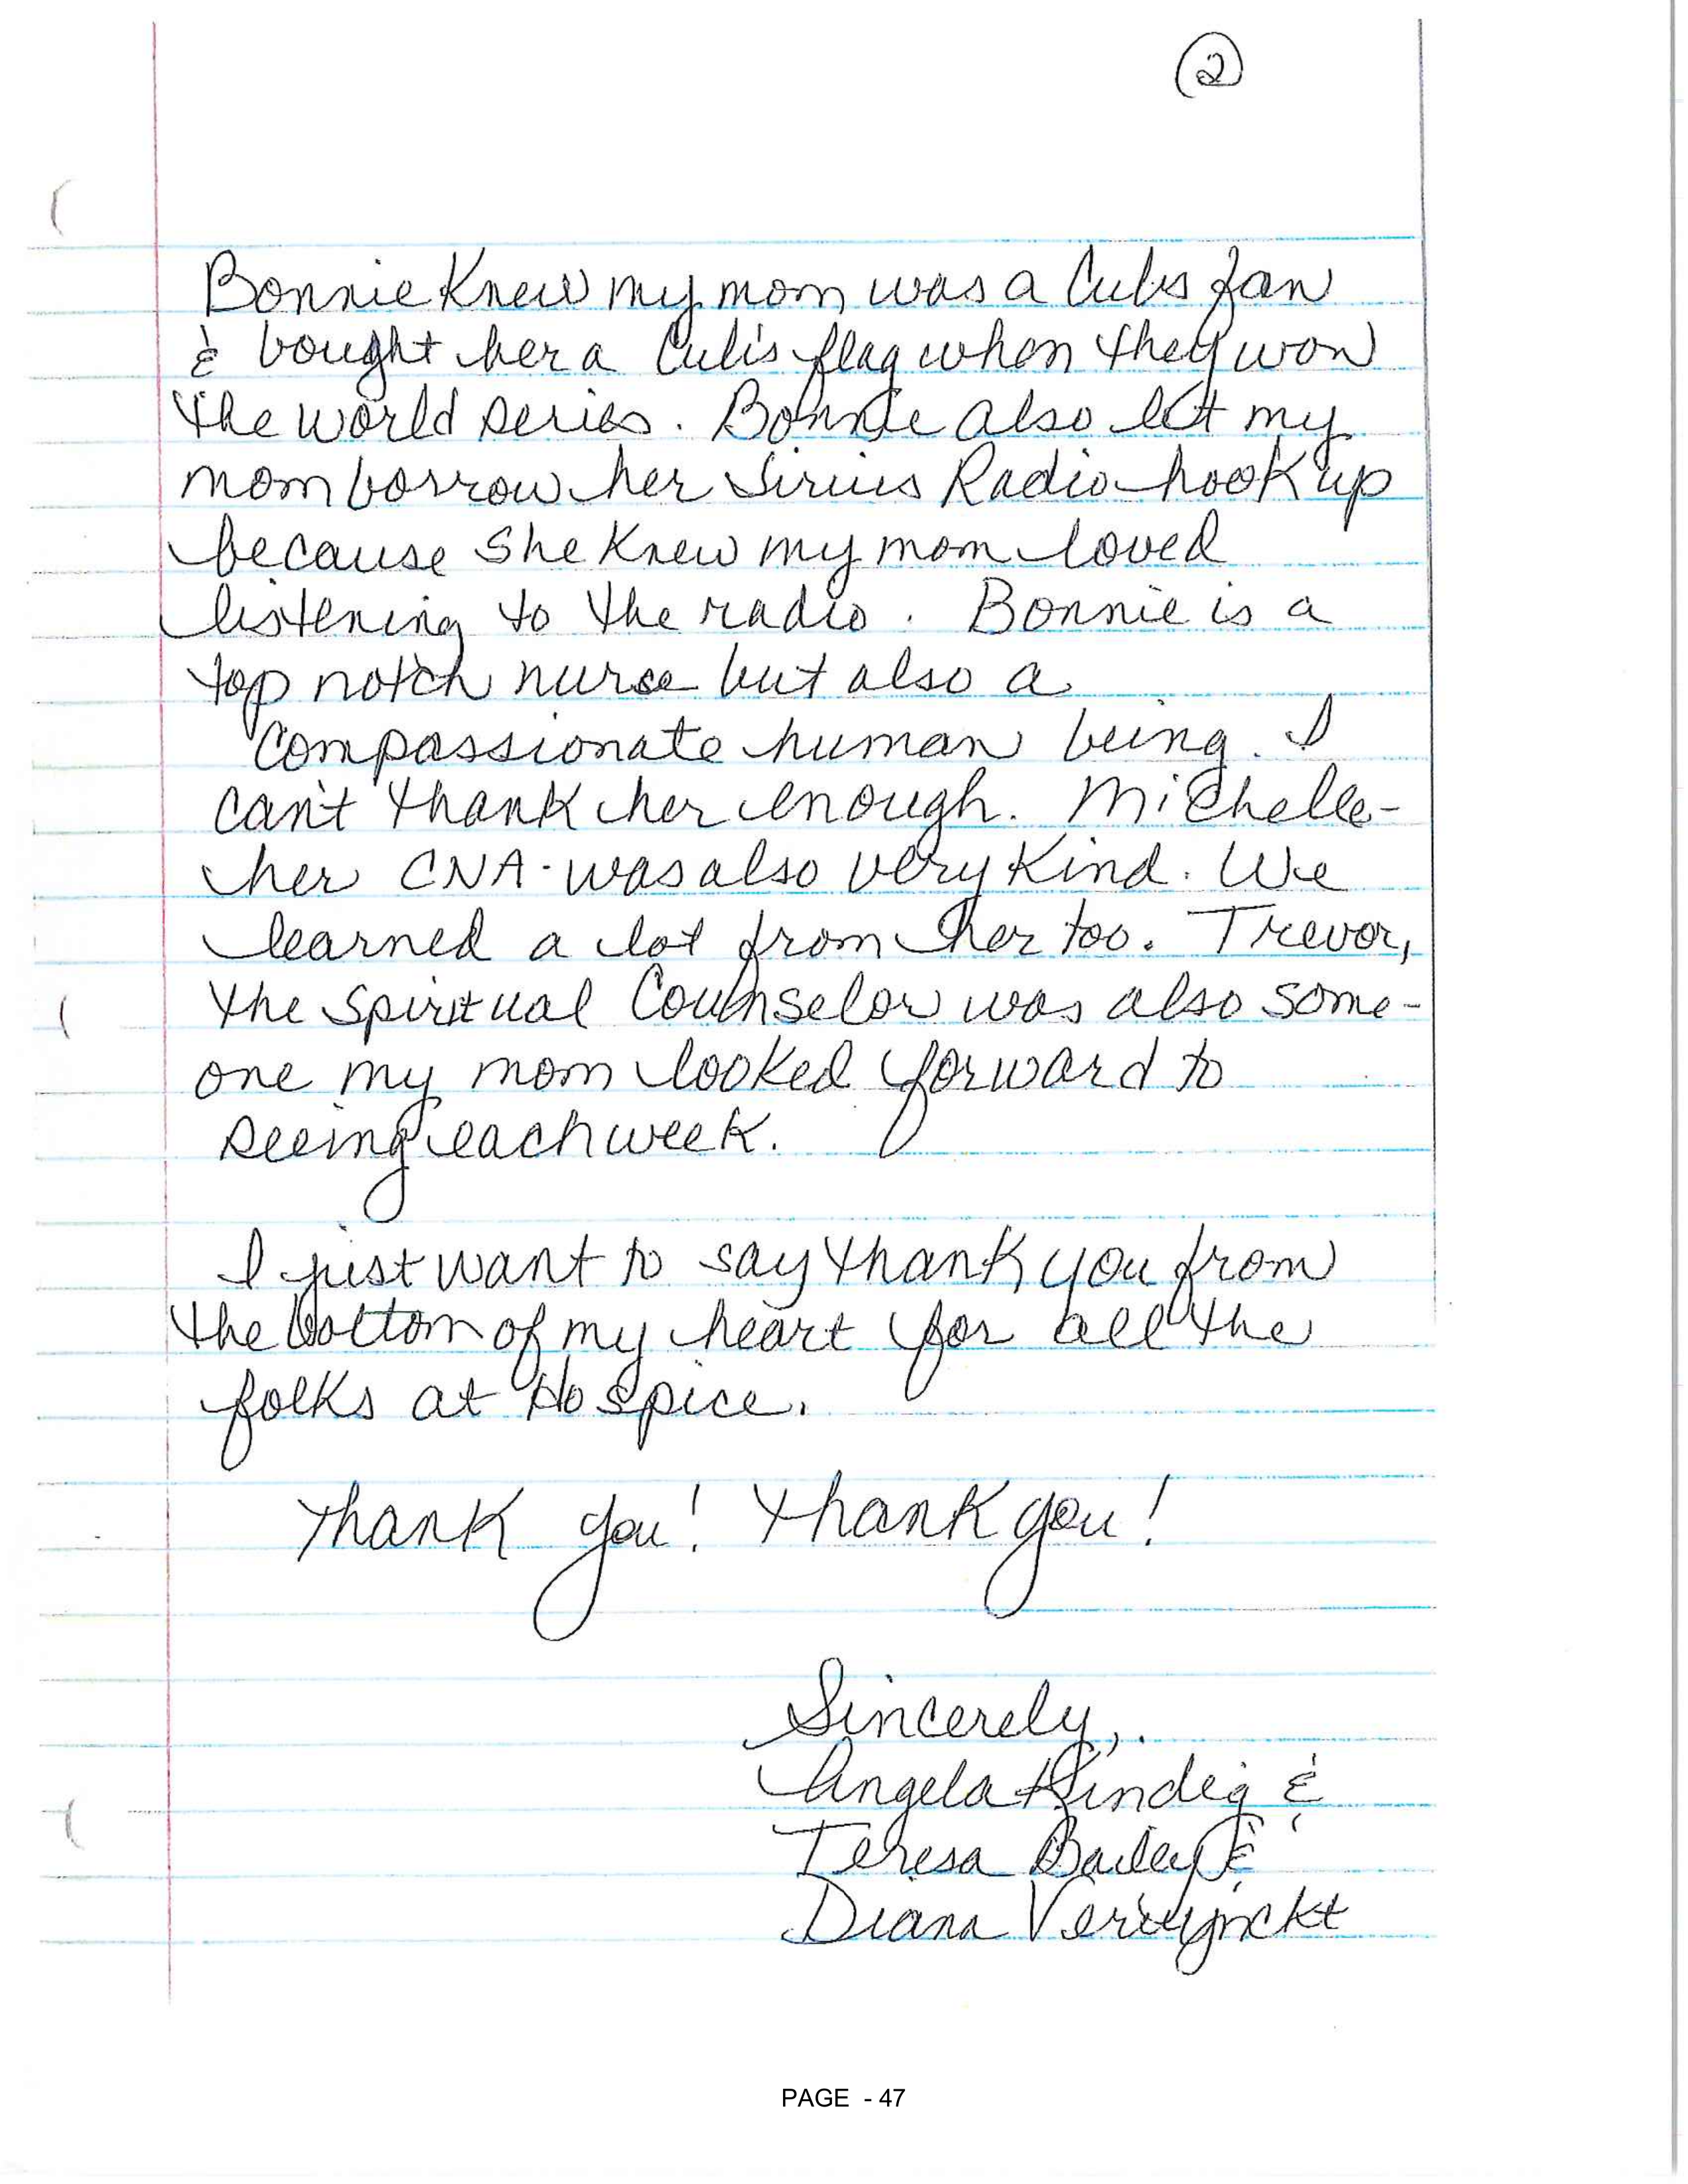 ②
Bonnie Knew my mom was a Cubs fan
& bought her a Cub's flag when they won
the world series. Bonnie also let my
mom borrow her Sirius Radio hook up
because she Knew my mom loved
listening to the radio. Bonnie is a
top notch nurse but also a
compassionate human being. I
can't thank her enough. Michelle-
her CNA - was also very Kind. We
learned a lot from her too. Trevor,
the Spiritual Counselor was also some-
one my mom looked forward to
seeing each week.
I just want to say thank you from
the bottom of my heart for all the
folks at Hospice.
Thank you! Thank you!
Sincerely,
Angela Kindig &
Teresa Bailey &
Diana Verwynckt
PAGE - 47